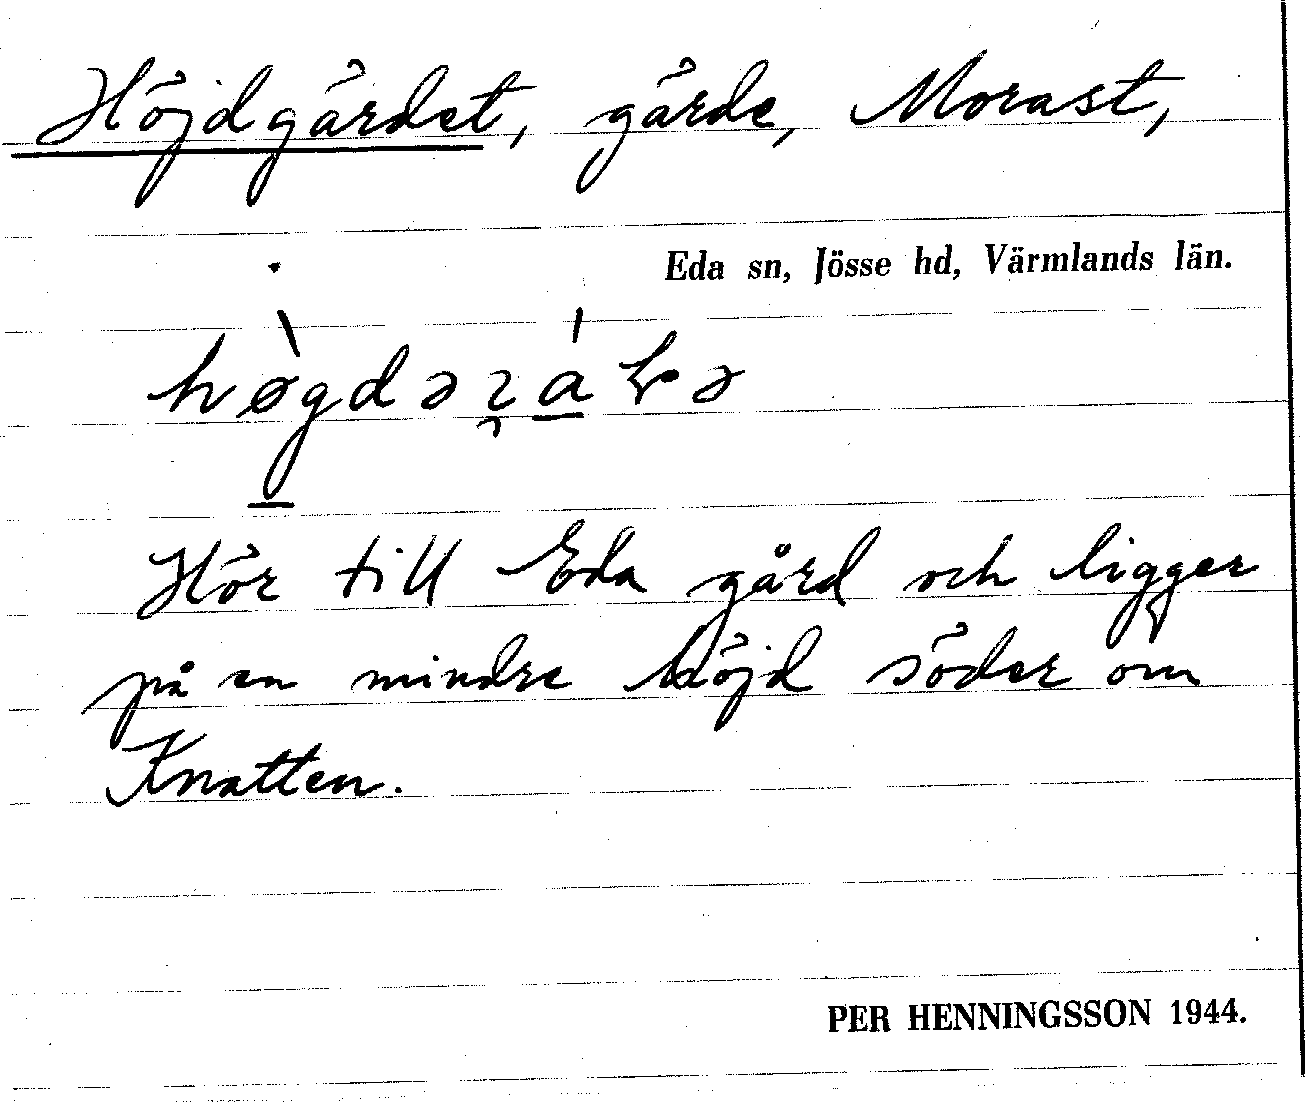 Höjdgärdet, gärde, Morast,
Eda sn, Jösse hd, Värmlands län.
Hör till Eda gård och ligger
på en mindre höjd söder om
Knatten.
PER HENNINGSSON 1944.